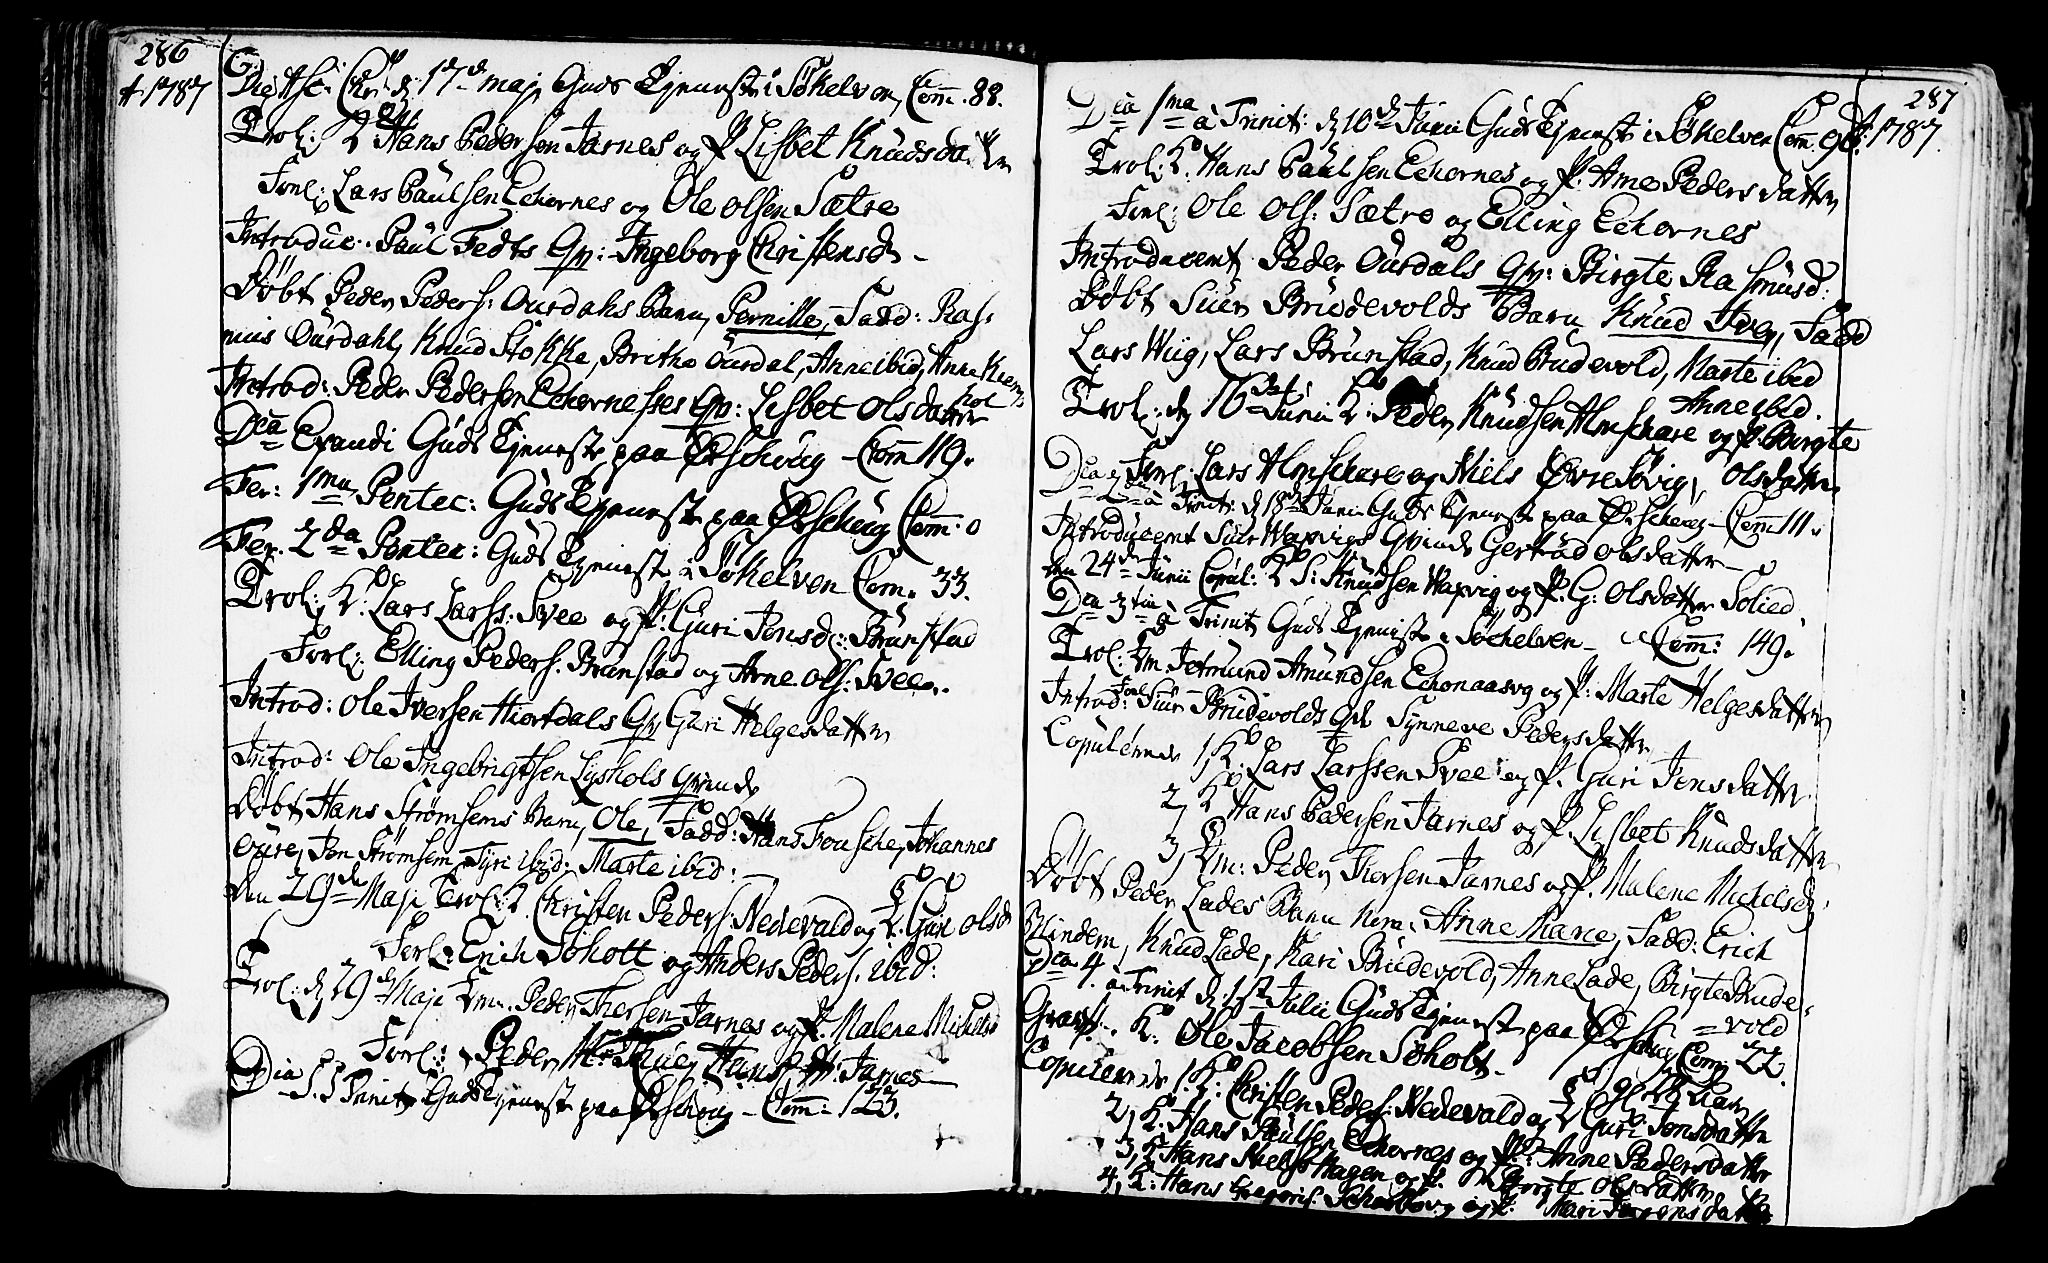 286
A 1787
Die Asc: Chr: d. 17de maji Guds Tjeneste i Søkelven, Com̄. 88.
Trol: K. Hans Pedersen Jarnes og P. Lisbet Knudsda.
Forl: Lars Paulsen Eckornes og Ole olsen Sætre
Introduc: Paul Fedts Qv: Ingeborg Christensd.
Døbt Peder Peders: Ourdals Barn, Pernille, Fadd: Ras-
mus Ourdahl, Knud Stokke, Brithe Ourdal, Anne ibid, Anne
Introd: Peder Pedersen Eckornesses Qv: Lisbet Olsdatter
Dca Exaudi Guds Tjeneste paa Ørschoug - Com̄ 119.
Fer: 1ma Pentec: Guds Tjeneste paa Ørschoug Com̄: 0
Fer. 2da Pentec: Guds Tjeneste i Søkelven Com. 33.
Trol: K. Lars Larss: Svee og P: Guri Jonsd: Brunstad
Forl: Elling Peders. Brunstad og Arne ols: Svee.
Introd: Ole Iversen Hiortdals Qv Guri Helgesdatter
Introd: Ole Ingebrigtsen Lyshols Qvinde
Døbt Hans Strømsems Barn, Ole, Fadd: Hans Fousche, Johannes
opire, Jon Strømsem, Syri ibid: Marte ibid:
den 29de Maji Trol: K. Christen Peders: Nedevald og P. Guri olsd
Forl: Erich Søholt og Anders Peders. ibid:
Trol: d. 29de Maji Em. Peder Thersen Jarnes og P. Malene Michelsd
Forl: Peder Hans Jarnes
Dca S.S Trinit: Guds Tjeneste paa Ørschoug - Com̄: 123.
287
A: 1787.
Dca 1ma à Trinit: d. 10de Junii Guds Tjeneste i Søkelven Com̄. 98.
Trol: K. Hans Paulsen Eckornes og P: Anne Pedersdatter
Forl: Ole Ols: Sætre og Elling Eckornes
Introducent Peder Ourdals Qv: Birgte Rasmusd:
Døbt Siur Brudevolds Barn Knud Iver, Fadd
Lars Wiig, Lars Brunstad, Knud Brudevold, Marte ibid
Anne ibid.
Trol: d. 16de Junii K: Peder Knudsen Almschare og P. Birgte
Olsdatter
Forl: Lars Almschare og Niels Øvre Søvig,
Dca 2 à Trinit: d. 18de Junii Guds Tjeneste paa Ørschoug - Com̄: 111.
Introducent Siur Waxvigs Qvinde Gertrud olsdatter
den 24de Junii Copul: K S: Knudsen Waxvig og P. G: Olsdatter Solied.
Dca 3tia à Trinit Guds Tjeniste i Søckelven - Com̄: 149.
Trol: Em. Jetmund Amundsen Echonaasvg og P: Marte Helgesdatter
Introd: Siur Brudevolds Qv Synneve Pedersdatter
Copulerede 1, K: Lars Larssen Svee og P. Guri Jonsdatter
2, K Hans Pedersen Jarnes og P. Lisbet Knudsdatter
3, Em: Peder Thersen Jarnes og P. Malene Michelsd:
Døbt Peder Lades Barn Anne Marie, Fadd: Erich
Blindem, Knud Lade, Kari Brudevold, Anne Lade, Birgte Brude-
= vold
Dca 4. à Trinit d. 1ste Julii Guds Tjeneste paa Ørschoug Com: 22.
Gravf: K: Ole Jacobsen Søholt -
Copulerede 1. K: Christen Peders: Nedevald og P Guri Jonsdatter
2, K: Hans Paulsen Eckornes og P: Anne Pedersdatter
3, K Hans Nielss: Hagen og P. Birgte olsdatter
4, K: Hans og P. Mari